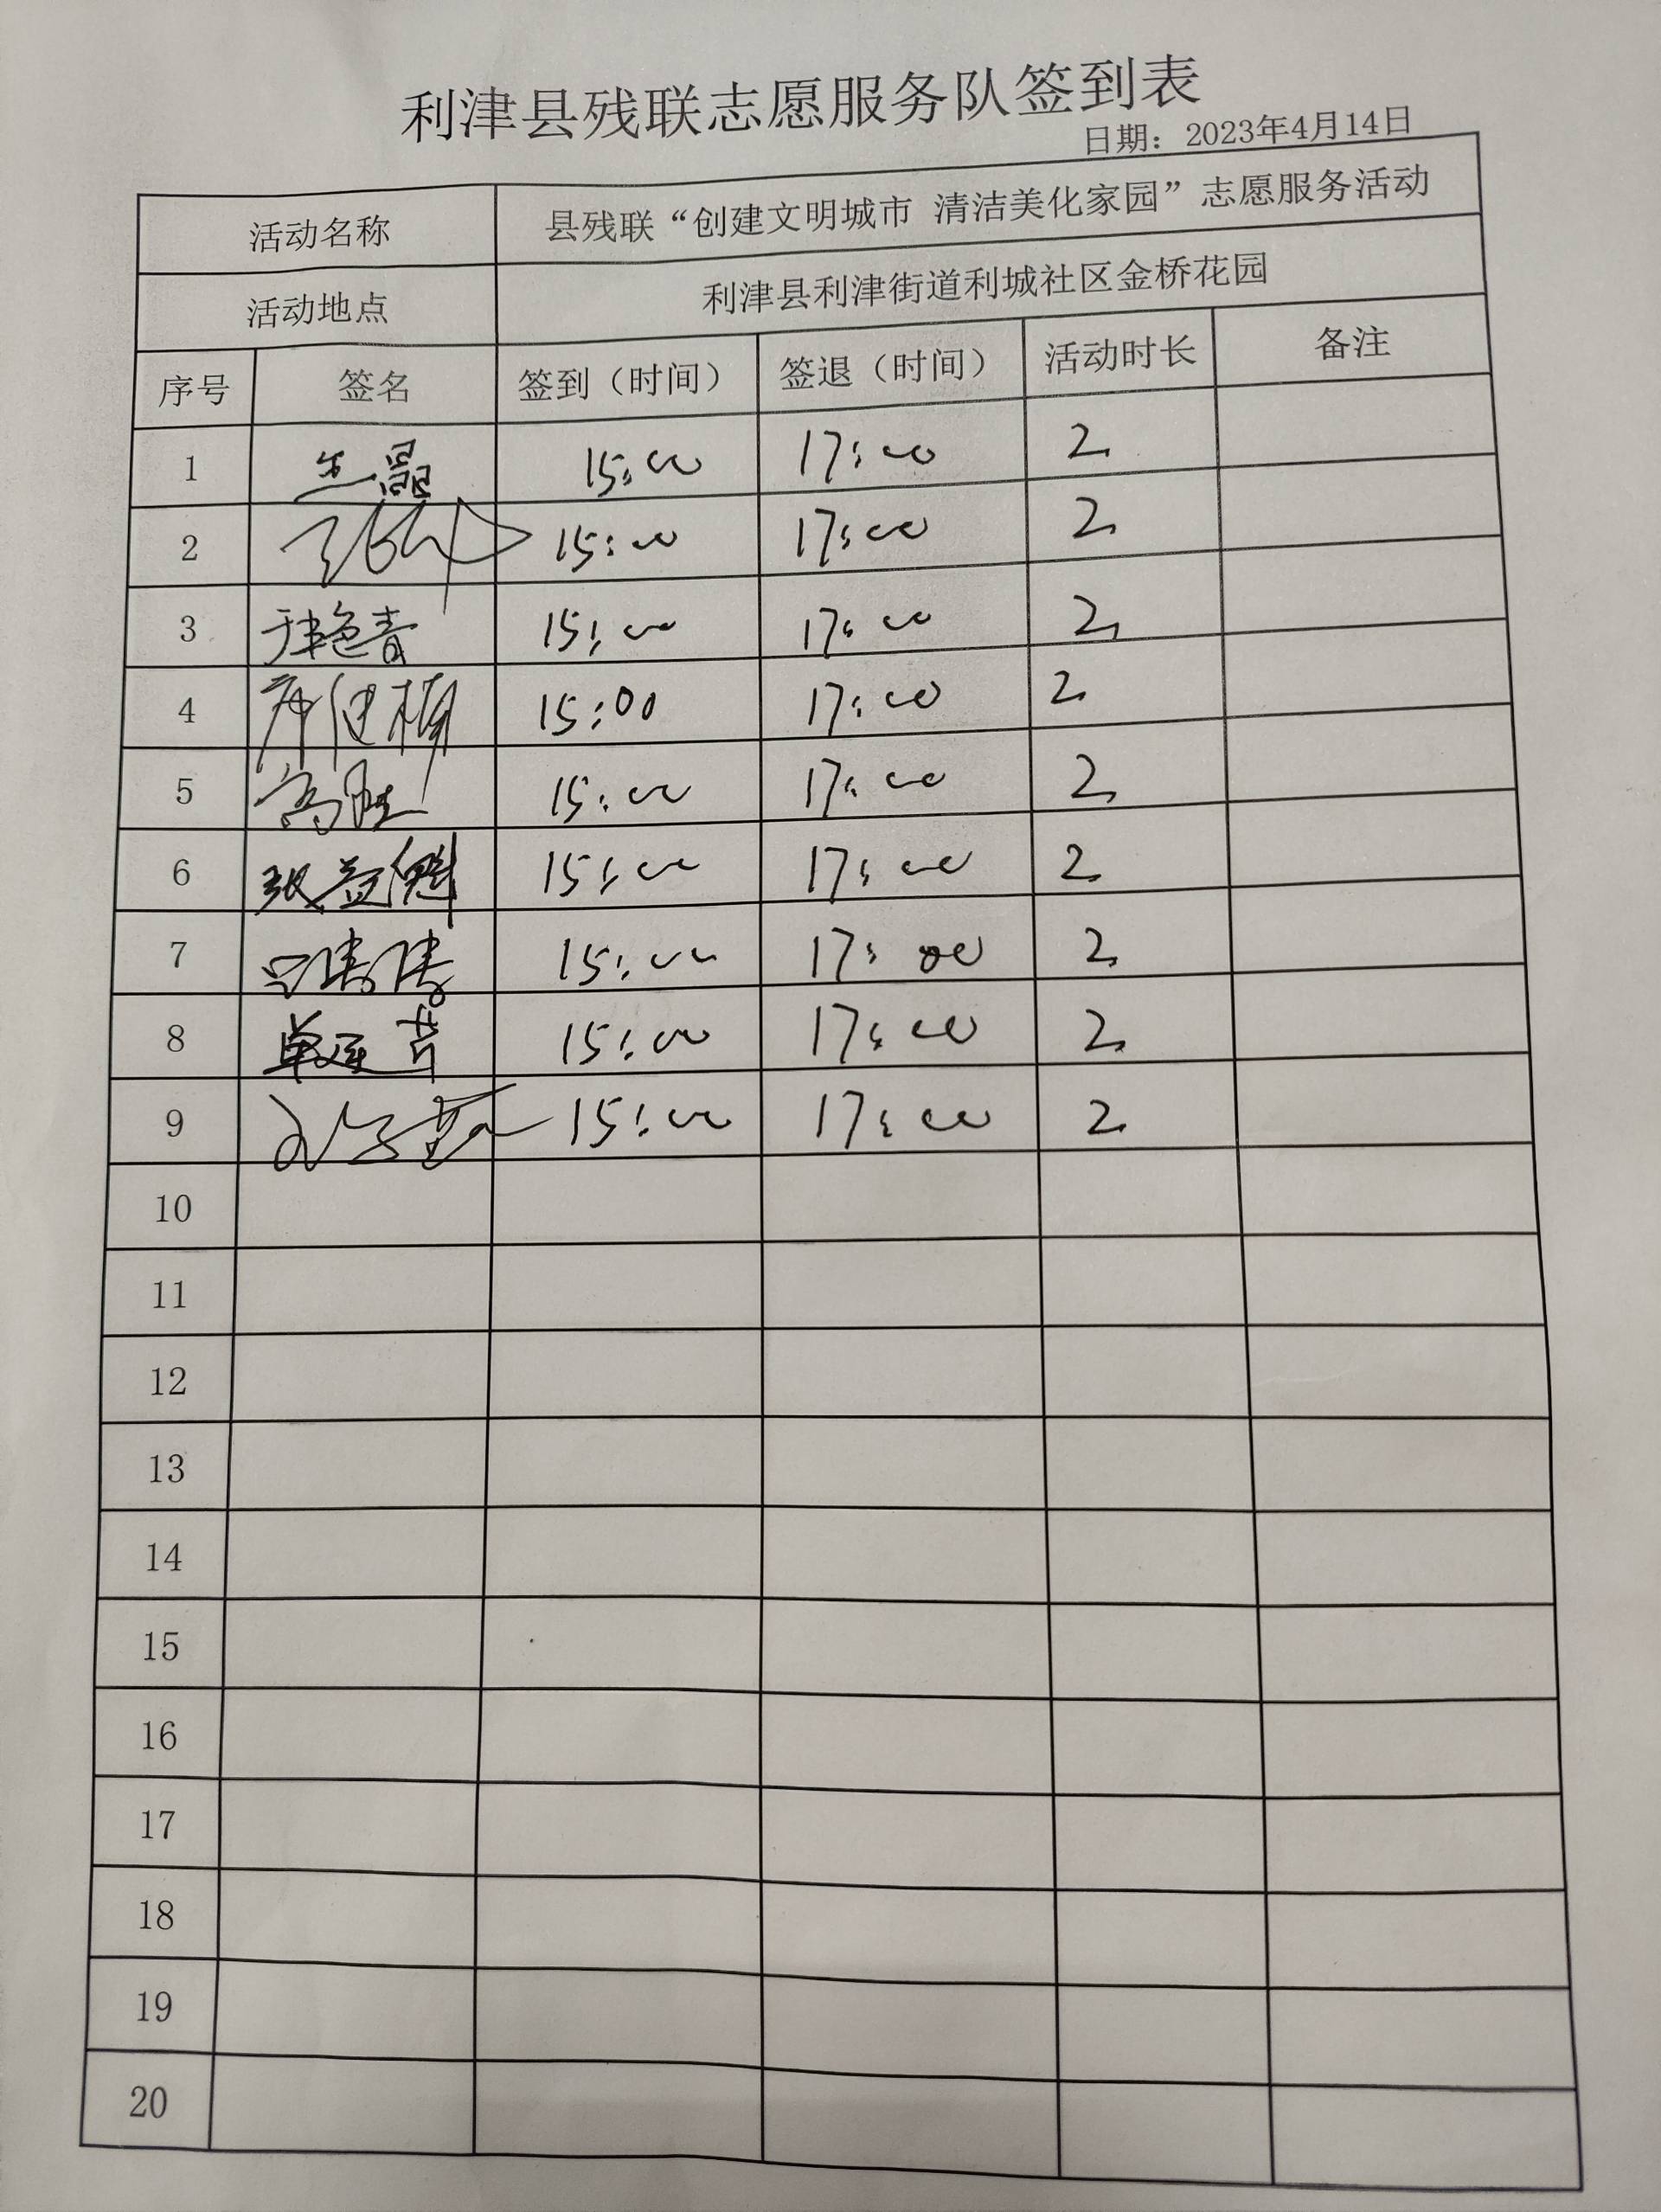 利津县残联志愿服务队签到表
日期：2023年4月14日
活动名称 县残联“创建文明城市 清洁美化家园”志愿服务活动
活动地点 利津县利津街道利城社区金桥花园
序号 签名 签到（时间） 签退（时间） 活动时长 备注
1 15:00 17:00 2
2 15:00 17:00 2
3 15:00 17:00 2
4 15:00 17:00 2
5 15:00 17:00 2
6 15:00 17:00 2
7 15:00 17:00 2
8 15:00 17:00 2
9 15:00 17:00 2
10
11
12
13
14
15
16
17
18
19
20